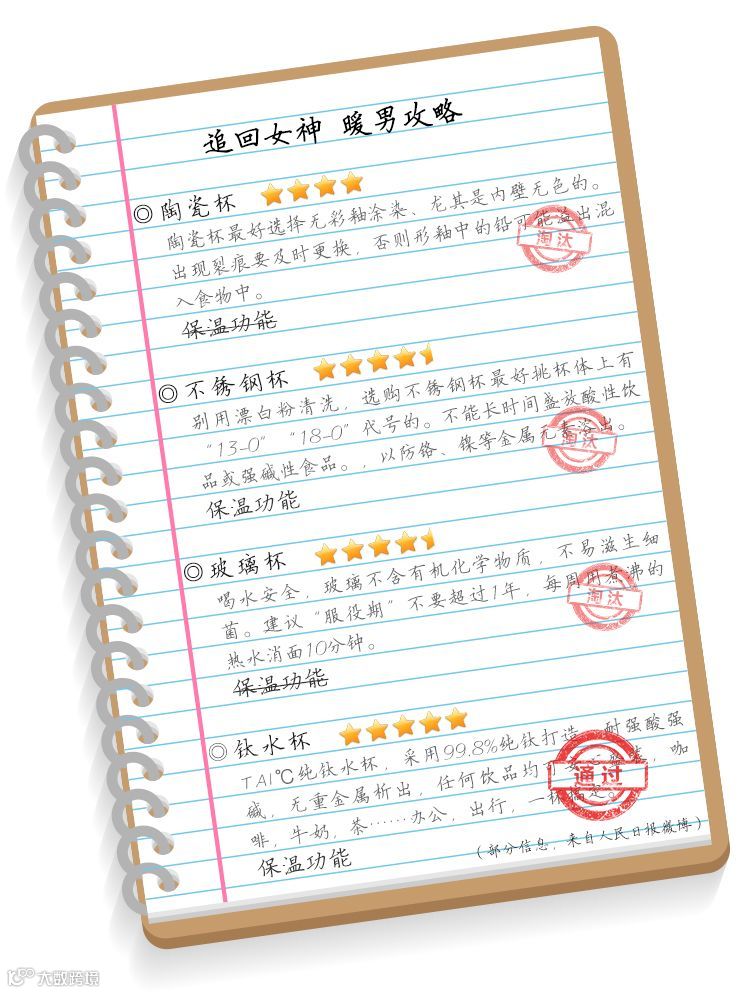 追回女神 暖男攻略
◎ 陶瓷杯
陶瓷杯最好选择无彩釉涂染、尤其是内壁无色的。
出现裂痕要及时更换，否则形釉中的铅可能溢出混
入食物中。
淘汰
保温功能
◎ 不锈钢杯
别用漂白粉清洗，选购不锈钢杯最好挑杯体上有
“13-0”“18-0”代号的。不能长时间盛放酸性饮
品或强碱性食品。，以防铬、镍等金属元素溶出。
淘汰
保温功能
◎ 玻璃杯
喝水安全，玻璃不含有机化学物质，不易滋生细
菌。建议“服役期”不要超过1年，每周用煮沸的
热水消面10分钟。
淘汰
保温功能
◎ 钛水杯
TAI℃纯钛水杯，采用99.8%纯钛打造，耐强酸强
碱，无重金属析出，任何饮品均可 咖
啡，牛奶，茶……办公，出行，一杯搞定。
通过
保温功能
（部分信息，来自人民日报微博）
大数跨境